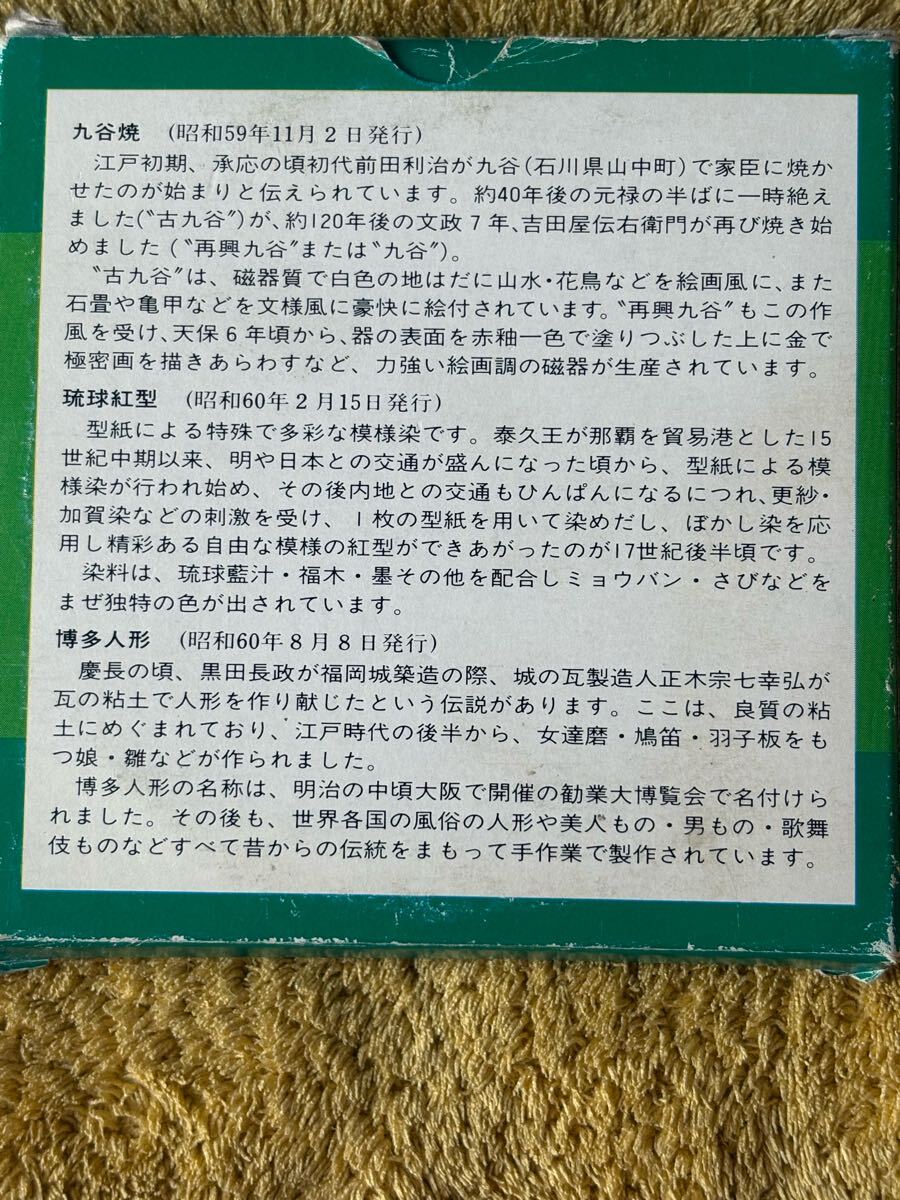 九谷焼 (昭和59年11月2日発行)
江戸初期、承応の頃初代前田利治が九谷(石川県山中町)で家臣に焼か
せたのが始まりと伝えられています。約40年後の元禄の半ばに一時絶え
ました(〝古九谷〟)が、約120年後の文政7年、吉田屋伝右衛門が再び焼き始
めました(〝再興九谷〟または〝九谷〟)。
〝古九谷〟は、磁器質で白色の地はだに山水・花鳥などを絵画風に、また
石畳や亀甲などを文様風に豪快に絵付されています。〝再興九谷〟もこの作
風を受け、天保6年頃から、器の表面を赤釉一色で塗りつぶした上に金で
極密画を描きあらわすなど、力強い絵画調の磁器が生産されています。
琉球紅型 (昭和60年2月15日発行)
型紙による特殊で多彩な模様染です。泰久王が那覇を貿易港とした15
世紀中期以来、明や日本との交通が盛んになった頃から、型紙による模
様染が行われ始め、その後内地との交通もひんぱんになるにつれ、更紗・
加賀染などの刺激を受け、1枚の型紙を用いて染めだし、ぼかし染を応
用し精彩ある自由な模様の紅型ができあがったのが17世紀後半頃です。
染料は、琉球藍汁・福木・墨その他を配合しミョウバン・さびなどを
まぜ独特の色が出されています。
博多人形 (昭和60年8月8日発行)
慶長の頃、黒田長政が福岡城築造の際、城の瓦製造人正木宗七幸弘が
瓦の粘土で人形を作り献じたという伝説があります。ここは、良質の粘
土にめぐまれており、江戸時代の後半から、女達磨・鳩笛・羽子板をも
つ娘・雛などが作られました。
博多人形の名称は、明治の中頃大阪で開催の勧業大博覧会で名付けら
れました。その後も、世界各国の風俗の人形や美人もの・男もの・歌舞
伎ものなどすべて昔からの伝統をまもって手作業で製作されています。